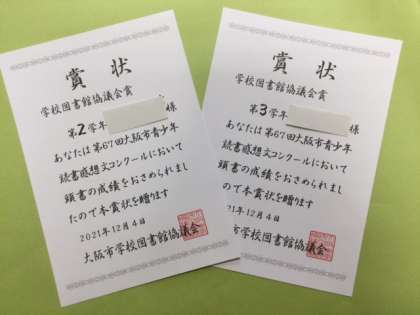 賞状
学校図書館協議会賞
第2学年 様
あなたは第67回大阪市青少年
読書感想文コンクールにおいて
頭書の成績をおさめられまし
たので本賞状を贈ります
2021年12月4日
大阪市学校図書館協議会
賞状
学校図書館協議会賞
第3学年 様
あなたは第67回大阪市青少年
読書感想文コンクールにおいて
頭書の成績をおさめられまし
ので本賞状を贈ります
21年12月4日
市学校図書館協議会